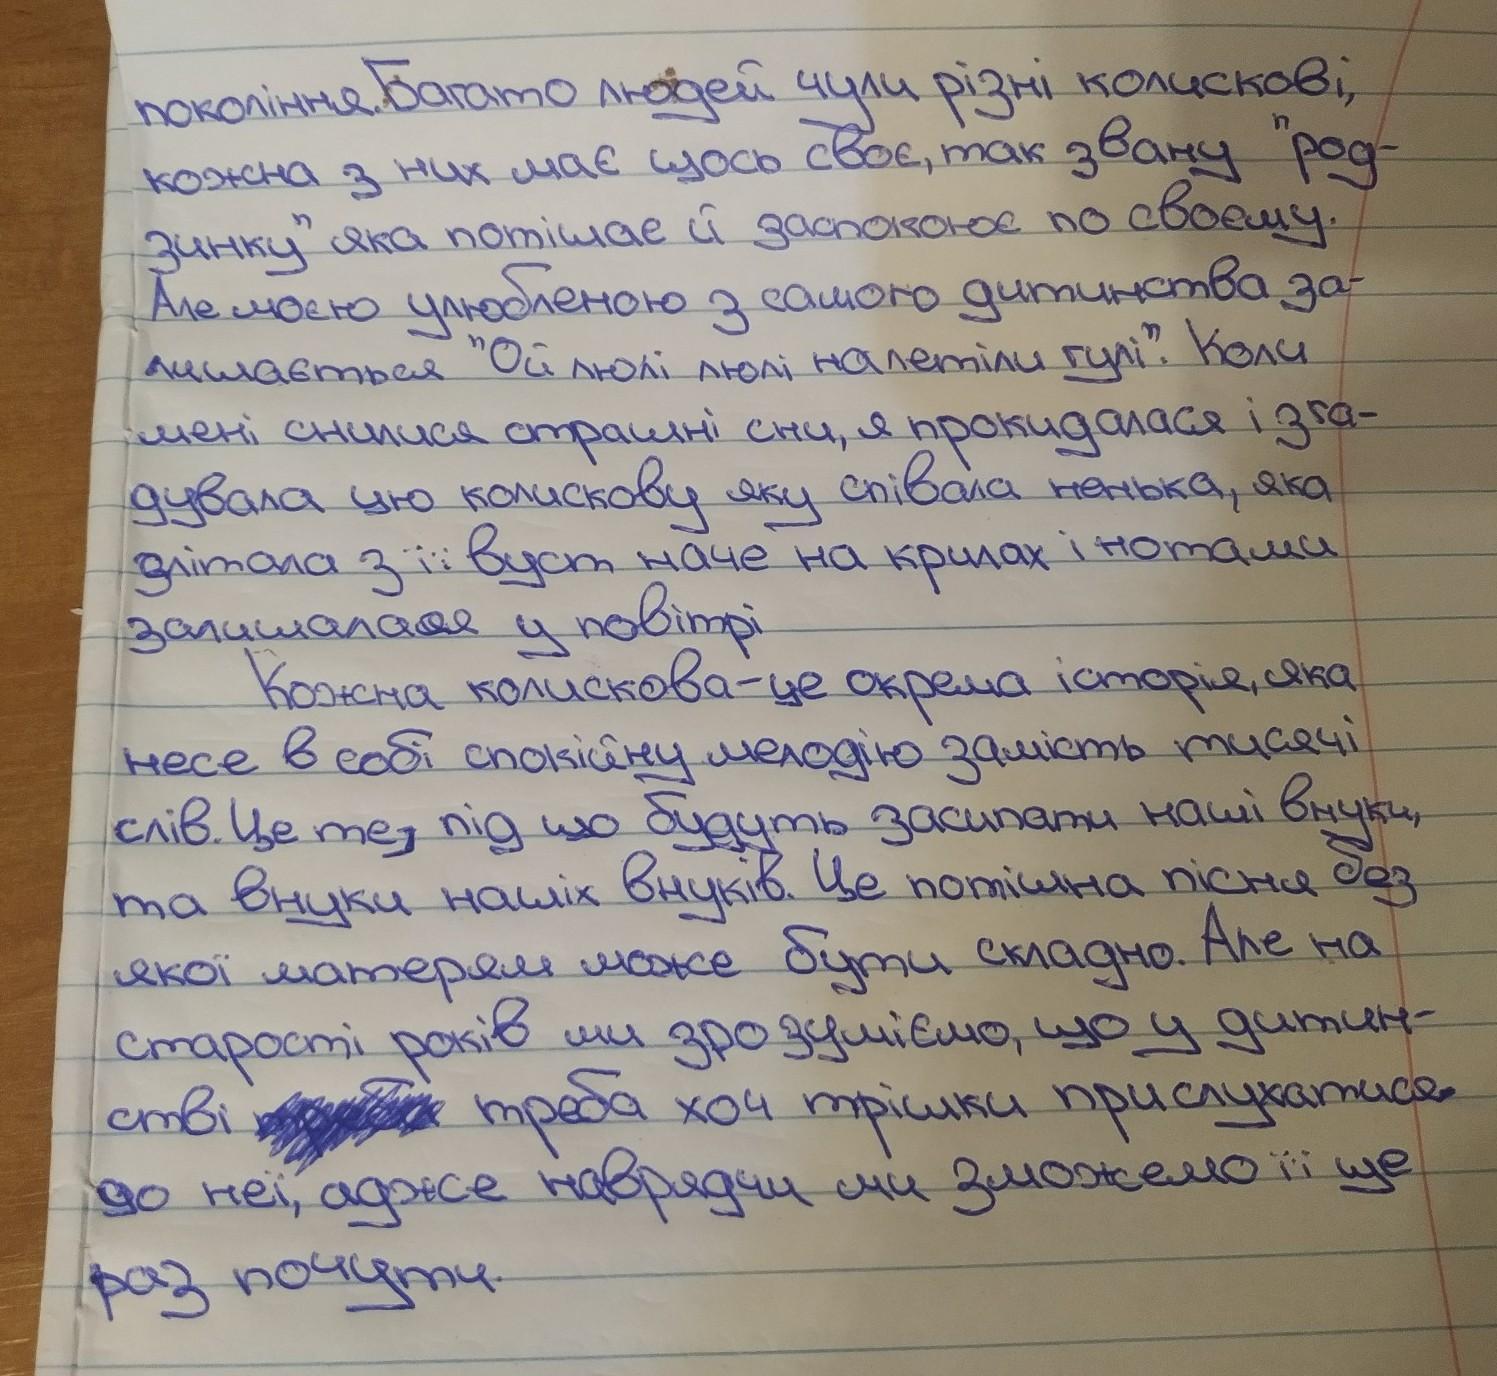 покоління. Багато людей чули різні колискові,
кожна з них має щось своє, так звану "род-
зинку" яка потішає й заспокоює по своєму.
Але моєю улюбленою з самого дитинства за-
лишається "Ой люлі люлі налетіли гулі". Коли
мені снилися страшні сни, я прокидалася і зга-
дувала цю колискову яку співала ненька, яка
злітала з її вуст наче на крилах і нотами
залишалася у повітрі
Кожна колискова - це окрема історія, яка
несе в собі спокійну мелодію замість тисячі
слів. Це те, під що будуть засипати наші внуки,
та внуки наших внуків. Це потішна пісня без
якої матерям може бути складно. Але на
старості років ми зрозуміємо, що у дитин-
стві треба хоч трішки прислухатися
до неї, адже наврядчи ми зможемо її ще
раз почути.